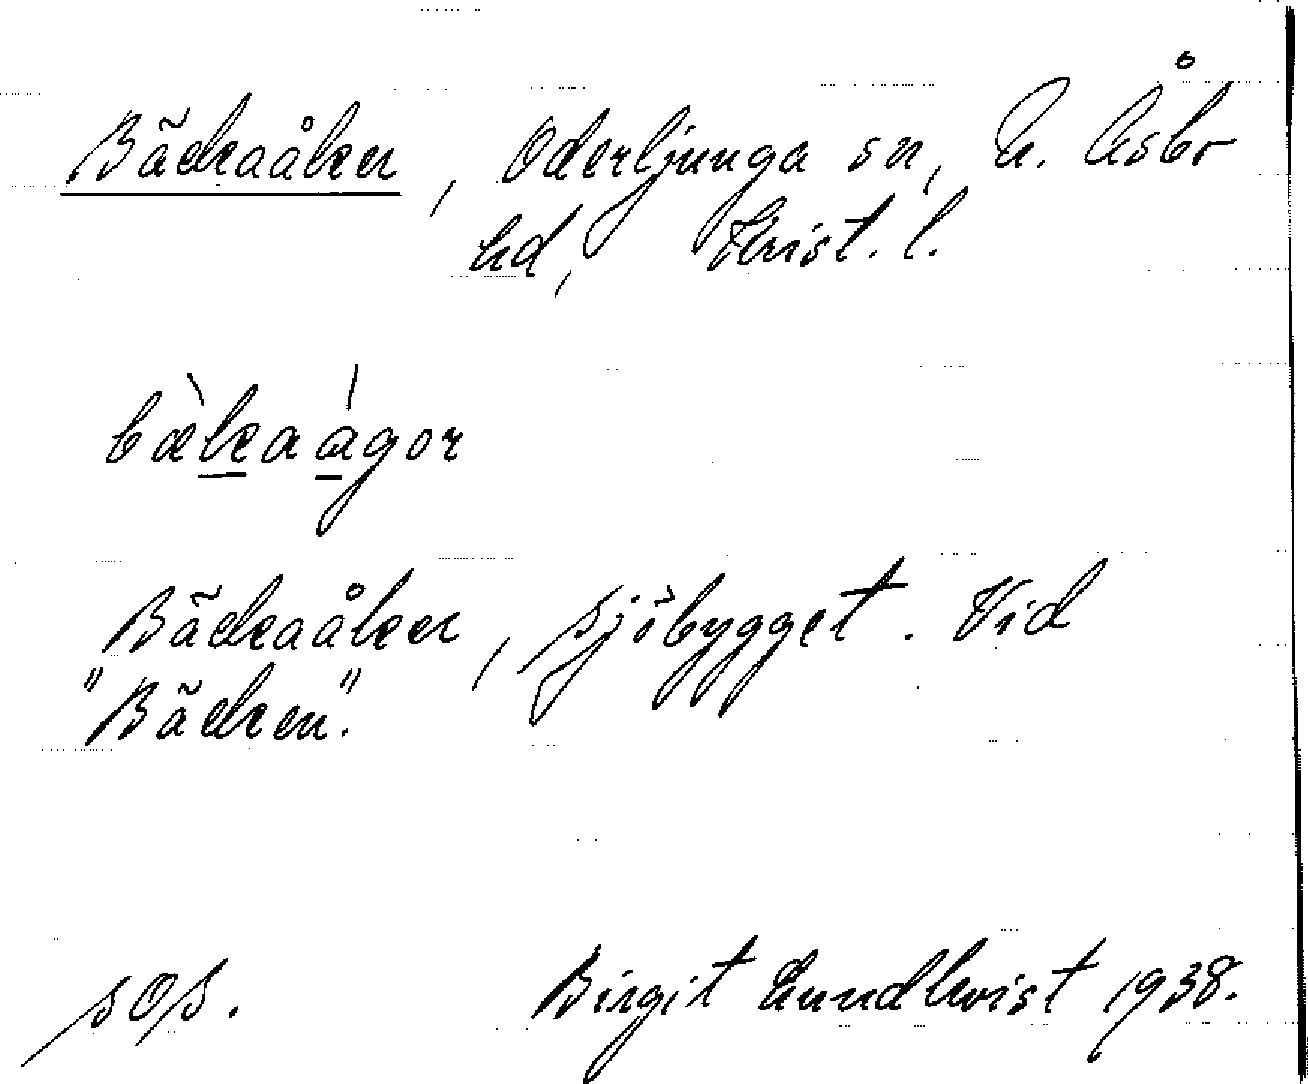 Bäckaåker, Oderljunga sn, N. Åsbo
hd, Krist. l.
bækaagor
Bäckaåker, sjöbygget. Vid
"Bäcken".
sOs. Birgit Lundkvist 1938.